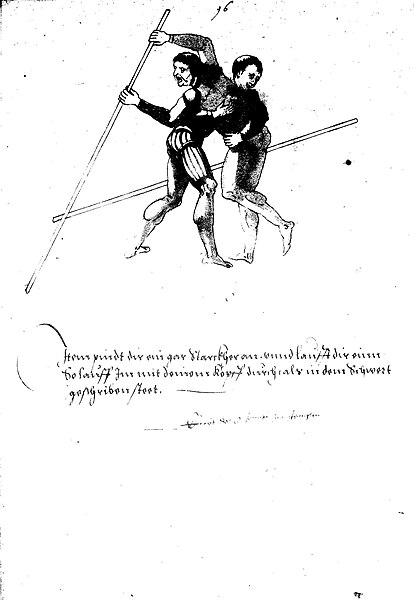 96
Item pindt dir ein gar starckher an. unnd laufft dir einn
So lauff Im mit deinem Kopff durch als in dem Schwert
geschriben steet.